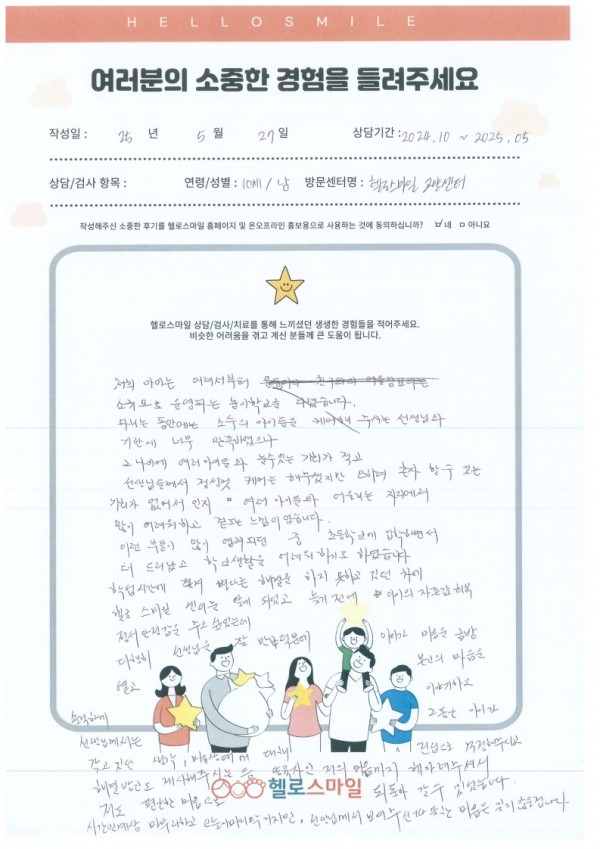 HELLOSMILE
여러분의 소중한 경험을 들려주세요
작성일 : 25 년 5 월 27 일 상담기간 : 2024.10 ~ 2025.05
상담/검사 항목 : 연령/성별 : 10세 / 남 방문센터명 : 헬로스마일 고양센터
작성해주신 소중한 후기를 헬로스마일 홈페이지 및 온오프라인 홍보용으로 사용하는 것에 동의하십니까? ☑네 □아니요
헬로스마일 상담/검사/치료를 통해 느끼셨던 생생한 경험들을 적어주세요.
비슷한 어려움을 겪고 계신 분들께 큰 도움이 됩니다.
저희 아이는 어려서부터
소규모로 운영되는 놀이학교를 다녔습니다.
다니는 동안에는 소수의 아이들을 케어해 주시는 선생님과
기관에 너무 만족하였으나
그 나이에 여러 아이들과 놀 수 있는 기회가 적고
선생님들께서 정성껏 케어는 해주셨지만 혼자 할 수 있는
기회가 없어서 인지 여러 아이들과 어울리는 자리에서
많이 어려워하고 겉도는 느낌이 있습니다.
이런 부분이 많이 염려되던 중 초등학교에 입학하면서
더 드러났고 학교생활을 어려워하기도 하였습니다
학습시간에 해결을 하지 못하고 있던 차에
헬로 스마일 센터를 알게 되었고 늦기 전에 아이의 자존감 회복
정서안정감을 주고 싶었는데
다행히 선생님을 잘 만난 덕분에 아이가 마음을 금방
열고 본인의 마음을
이야기하고
솔직하게 그동안 아이가
선생님께서는
갖고 있던 생각, 대해 진심으로 걱정해주시고
해결방안도 제시해주시는 등 저의 마음까지 헤아려주셔서
저도 편안한 마음으로 되돌아 갈 수 있었습니다.
시간관계상 마무리하고 선생님께서 보여주신 마음은 잊지 않을겁니다.
헬로스마일